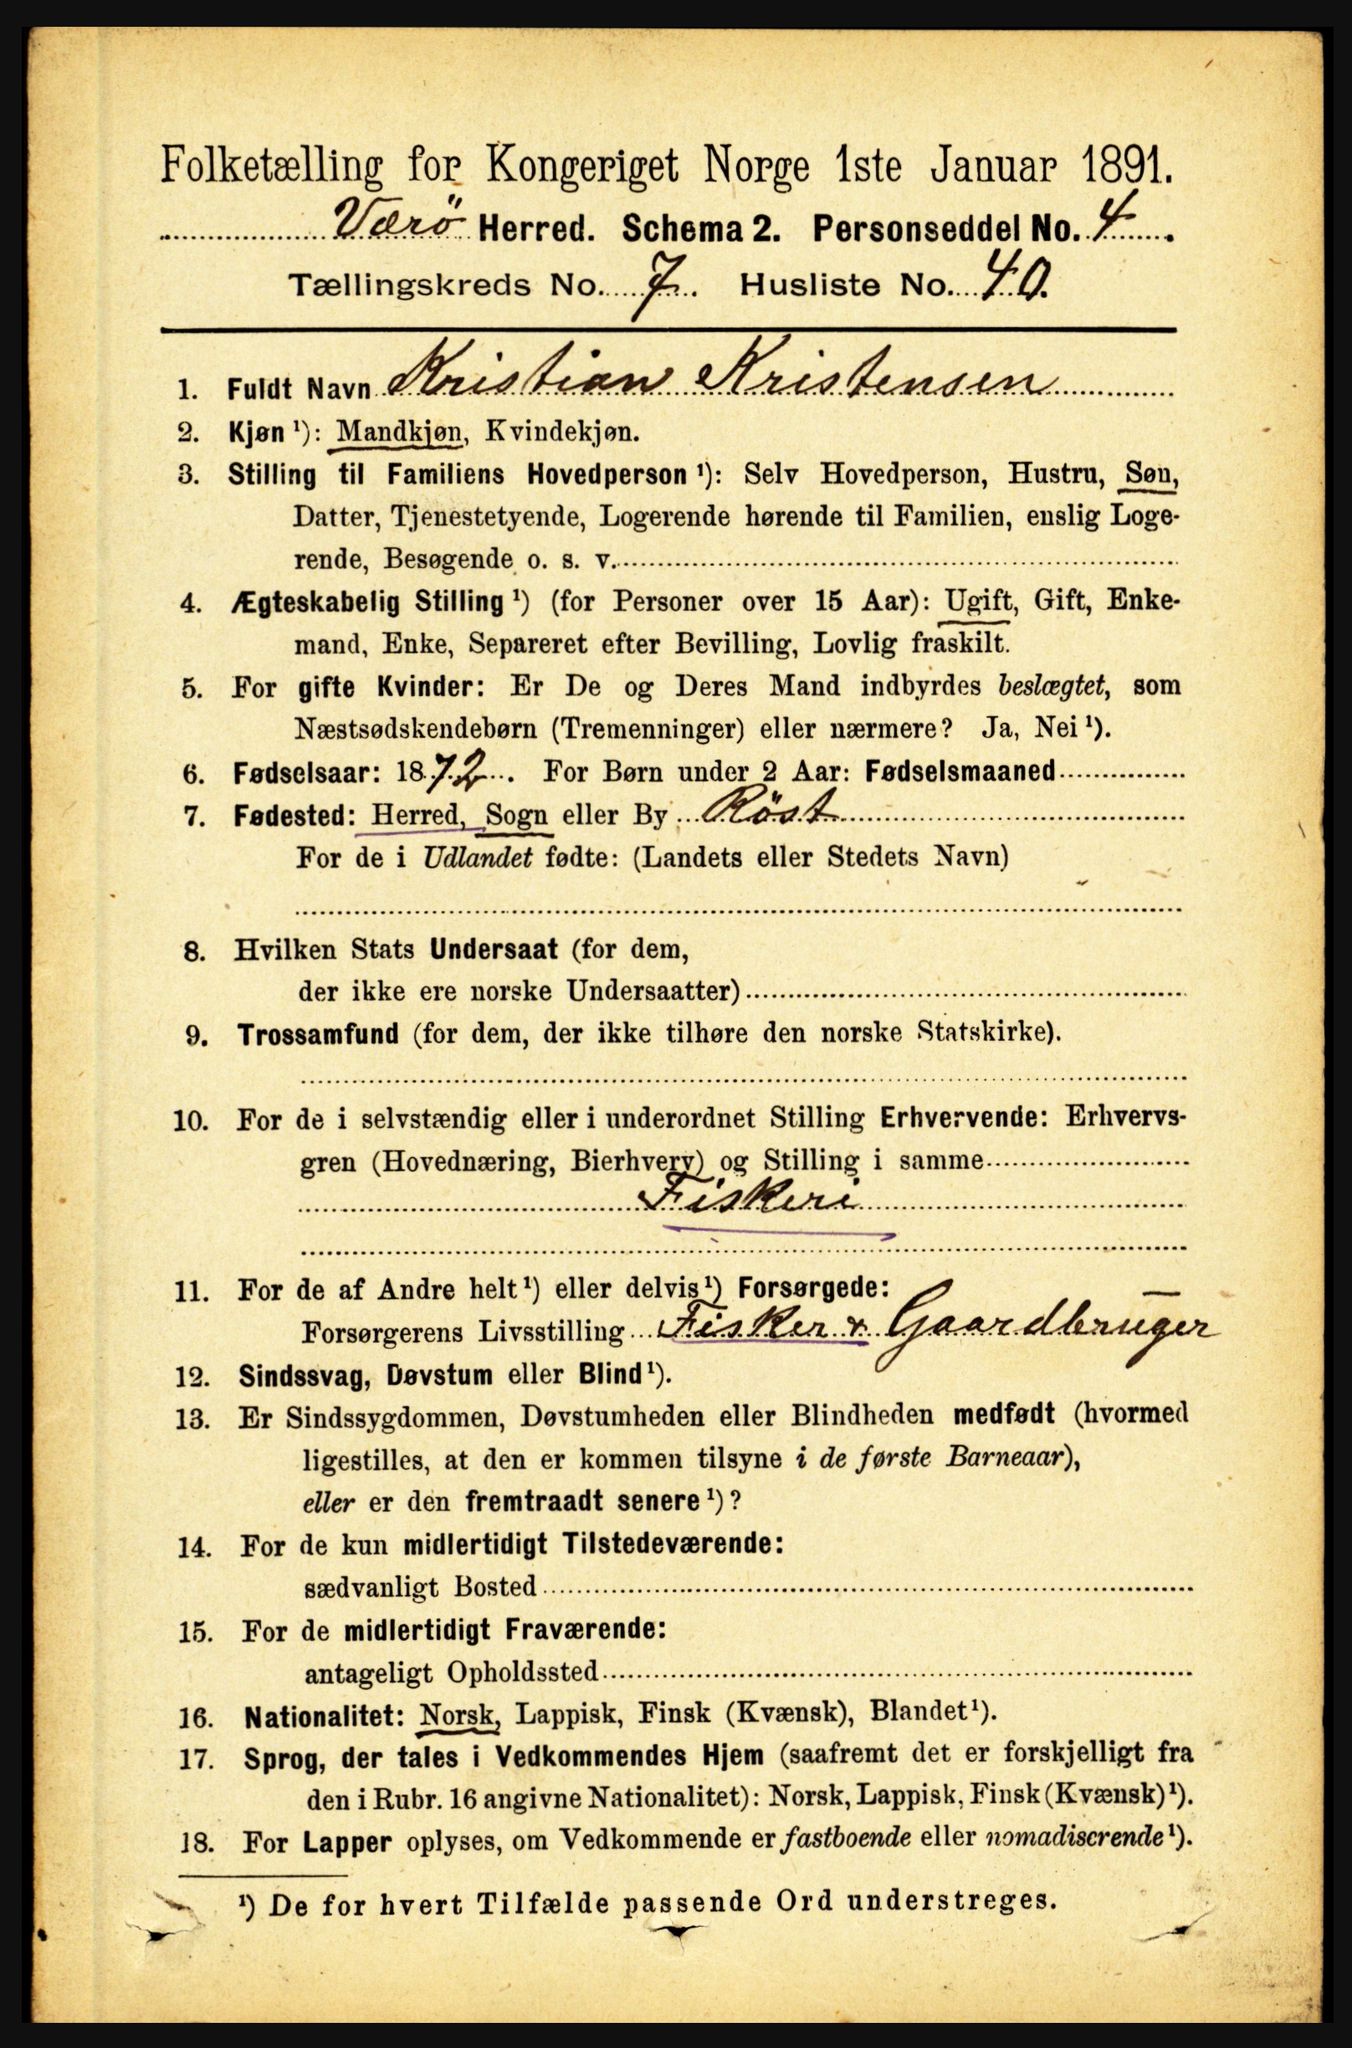 Folketælling for Kongeriget Norge 1ste Januar 1891.
Værö Herred. Schema 2. Personseddel No. 4.
Tællingskreds No. 7. Husliste No. 40.
1. Fuldt Navn Kristian Kristensen
2. Kjøn ¹): Mandkjøn, Kvindekjøn.
3. Stilling til Familiens Hovedperson ¹): Selv Hovedperson, Hustru, Søn,
Datter, Tjenestetyende, Logerende hørende til Familien, enslig Loge-
rende, Besøgende o. s. v.
4. Ægteskabelig Stilling ¹) (for Personer over 15 Aar): Ugift, Gift, Enke-
mand, Enke, Separeret efter Bevilling, Lovlig fraskilt.
5. For gifte Kvinder: Er De og Deres Mand indbyrdes beslægtet, som
Næstsødskendebørn (Tremenninger) eller nærmere? Ja, Nei ¹).
6. Fødselsaar: 1872. For Børn under 2 Aar: Fødselsmaaned
7. Fødested: Herred, Sogn eller By Röst
For de i Udlandet fødte: (Landets eller Stedets Navn)
8. Hvilken Stats Undersaat (for dem,
der ikke ere norske Undersaatter)
9. Trossamfund (for dem, der ikke tilhøre den norske Statskirke).
10. For de i selvstændig eller i underordnet Stilling Erhvervende: Erhvervs-
gren (Hovednæring, Bierhverv) og Stilling i samme
Fiskeri
11. For de af Andre helt ¹) eller delvis ¹) Forsørgede:
Forsørgerens Livsstilling Fisker & Gaardbruger
12. Sindssvag, Døvstum eller Blind ¹).
13. Er Sindssygdommen, Døvstumheden eller Blindheden medfødt (hvormed
ligestilles, at den er kommen tilsyne i de første Barneaar),
eller er den fremtraadt senere ¹)?
14. For de kun midlertidigt Tilstedeværende:
sædvanligt Bosted
15. For de midlertidigt Fraværende:
antageligt Opholdssted
16. Nationalitet: Norsk, Lappisk, Finsk (Kvænsk), Blandet ¹).
17. Sprog, der tales i Vedkommendes Hjem (saafremt det er forskjelligt fra
den i Rubr. 16 angivne Nationalitet): Norsk, Lappisk, Finsk (Kvænsk) ¹).
18. For Lapper oplyses, om Vedkommende er fastboende eller nomadiserende ¹).
¹) De for hvert Tilfælde passende Ord understreges.